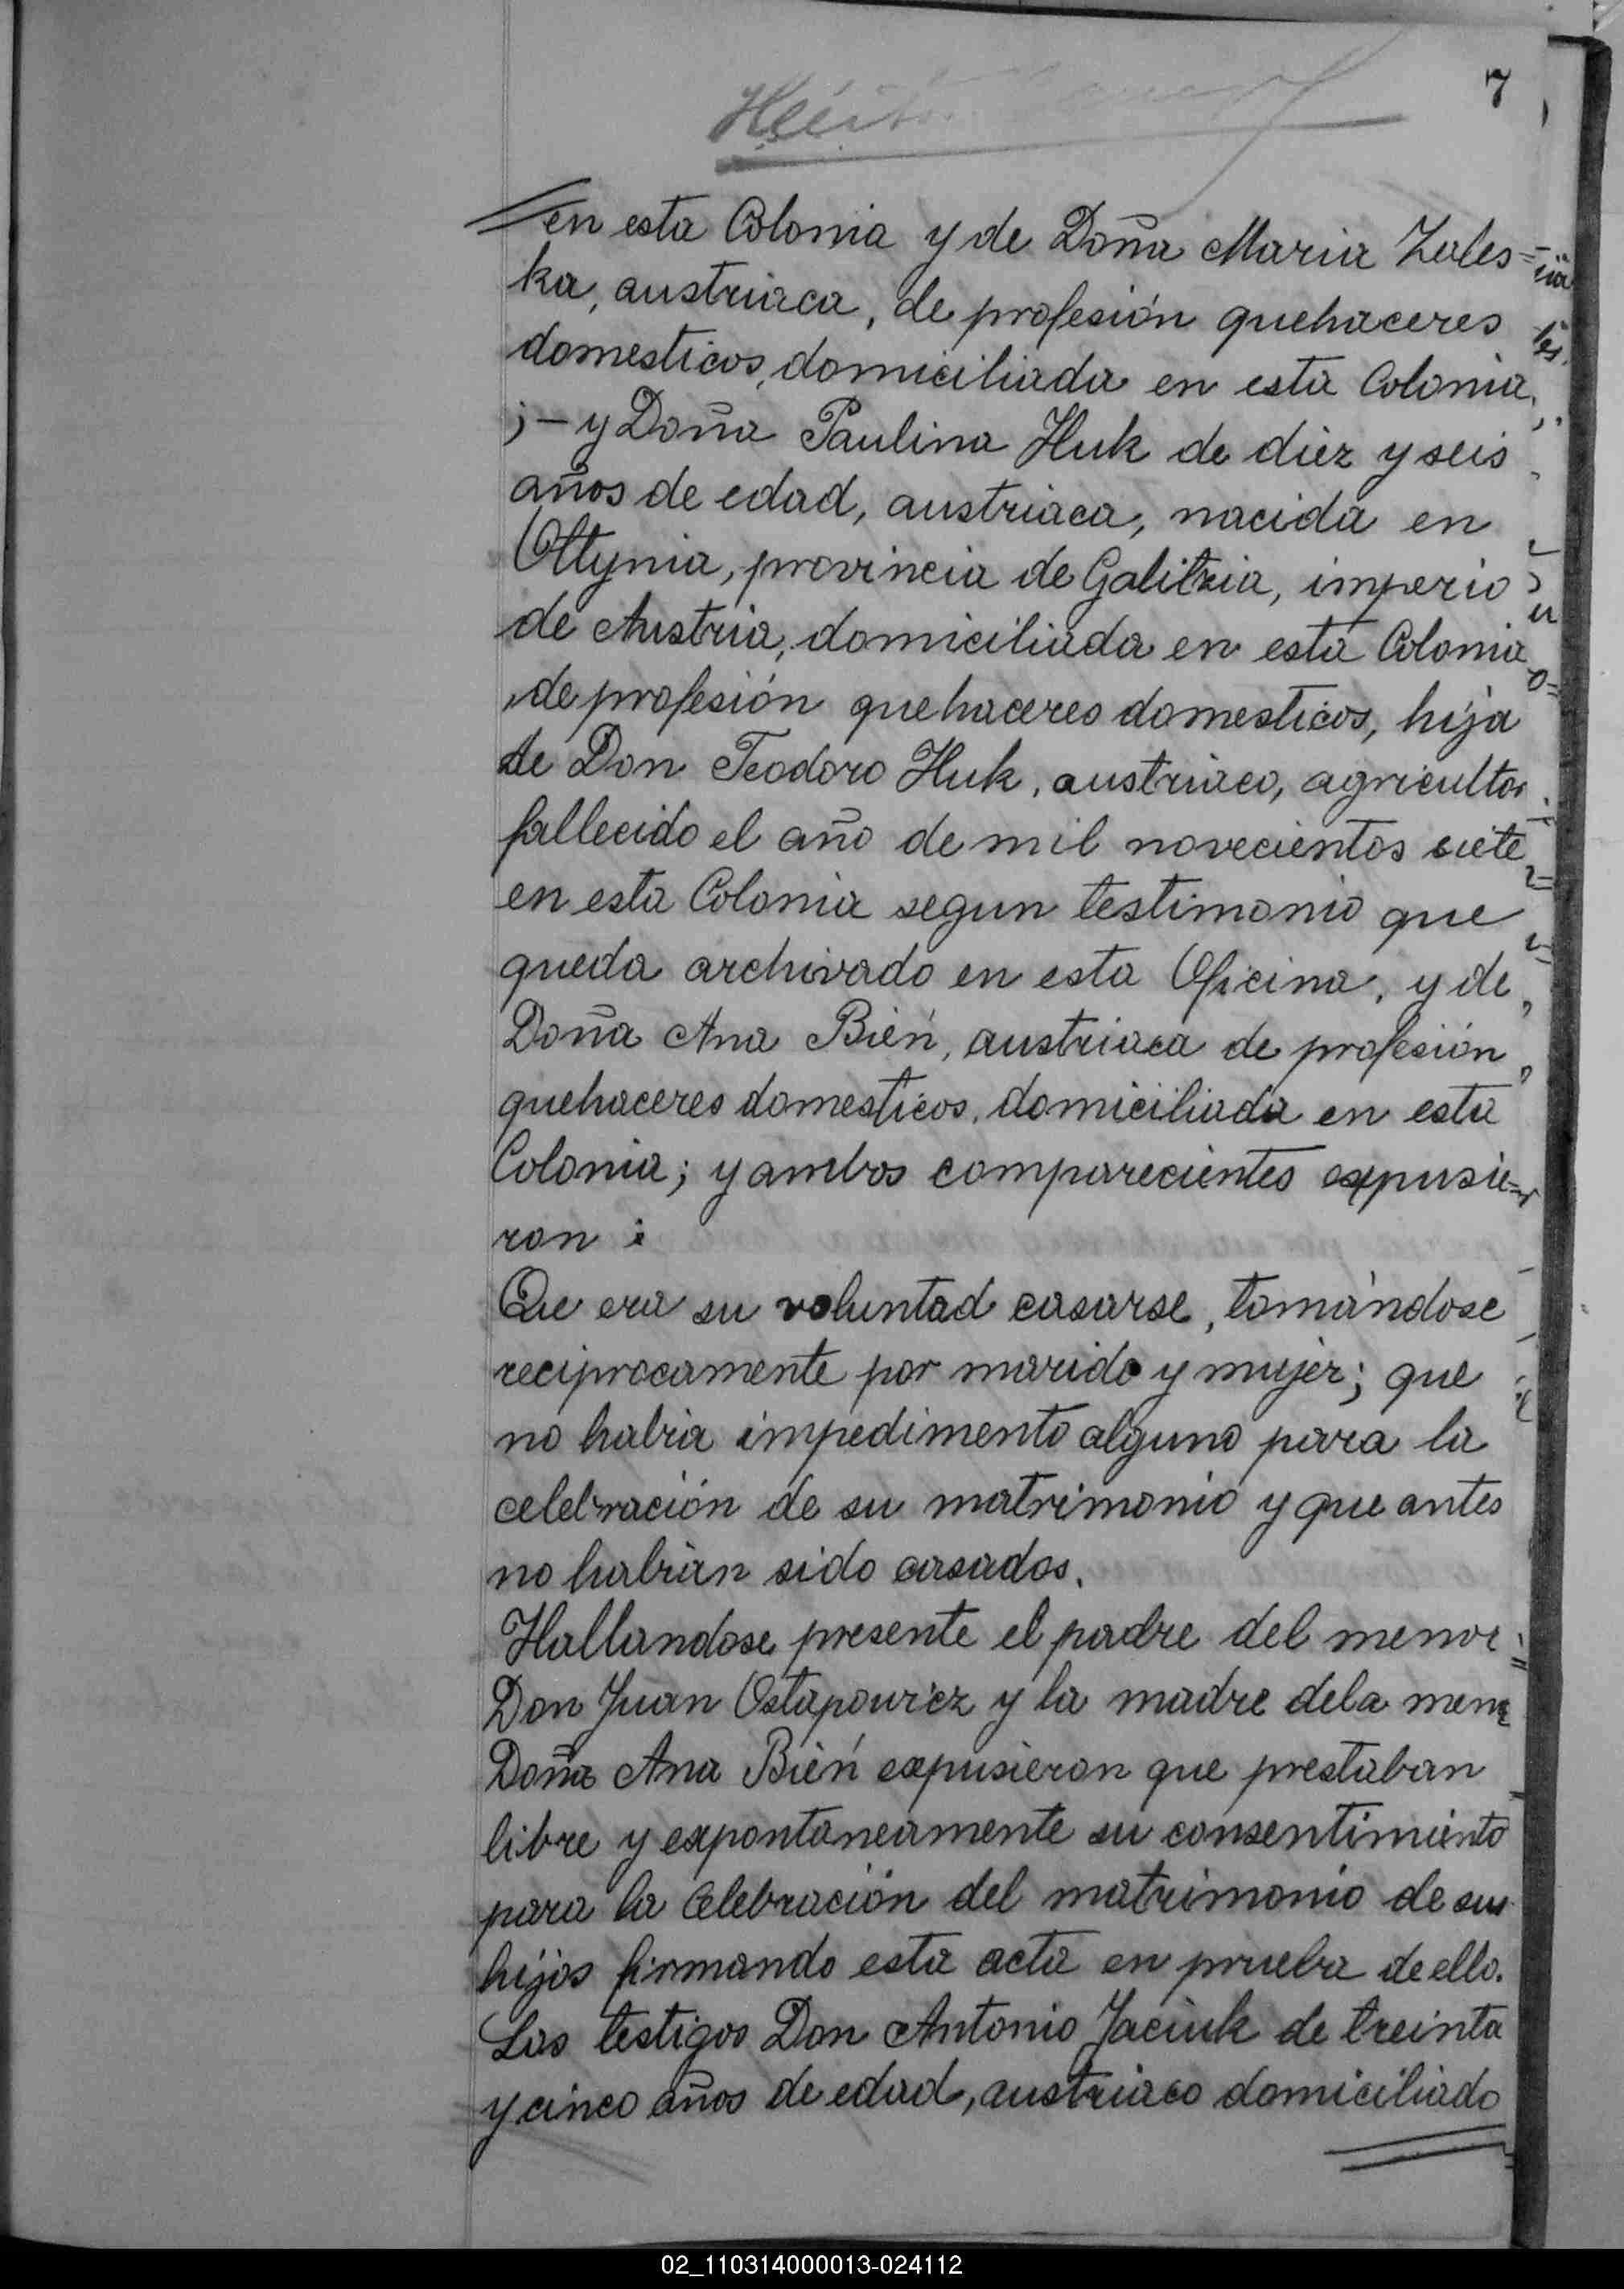 7
en esta Colonia y de Doña Maria Zales=
ka, austriaca, de profesión quehaceres
domesticos, domiciliada en esta Colonia,
;- y Doña Paulina Huk de diez y seis
años de edad, austriaca, nacida en
Ottynia, provincia de Galitzia, imperio
de Austria, domiciliada en esta Colonia
, de profesión quehaceres domesticos, hija
de Don Teodoro Huk, austriaco, agricultor
fallecido el año de mil novecientos siete
en esta Colonia segun testimonio que
queda archivado en esta Oficina, y de
Doña Ana Bień, austriaca de profesión
quehaceres domesticos, domiciliada en esta
Colonia; y ambos comparecientes expusie=
ron :
Que era su voluntad casarse, tomándose
reciprocamente por marido y mujer; que
no habia impedimento alguno para la
celebración de su matrimonio y que antes
no habian sido casados.
Hallandose presente el padre del menor
Don Juan Ostapowicz y la madre dela menor
Doña Ana Bień expusieron que prestaban
libre y expontaneamente su consentimiento
para la Celebración del matrimonio de sus
hijos firmando esta acta en prueba de ello.
Los testigos Don Antonio Jaciuk de treinta
y cinco años de edad, austriaco domiciliado
02_110314000013-024112